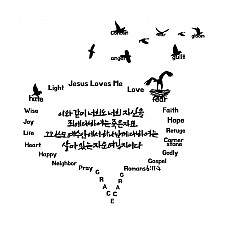 gloom
anger
guilt
Jesus Loves Me
Light
Love
hate
fear
Wise
이와 같이 너희도 너희 자신을
Faith
Joy
죄에 대하여는 죽은 자요
Hope
Life
그리스도 예수 안에서 하나님께 대하여는
Refuge
Heart
살아 있는 자로 여길지어다
Corner
stone
Happy
Godly
Neighbor
Gospel
Pray
Romans6:11
GRACE
GRACE